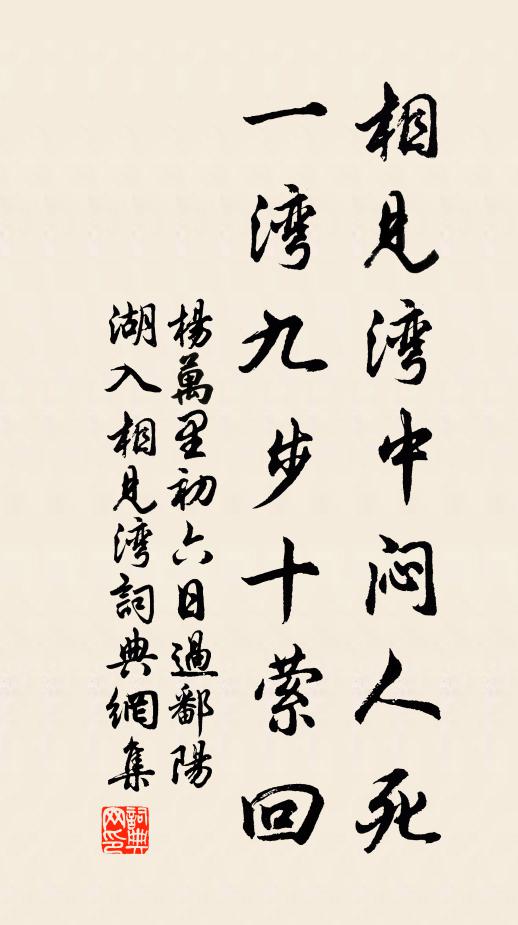 相见湾中闷人死
一湾九步十萦回
楊萬里初六日過鄱陽
湖入相見湾詞典網集
詞典网印